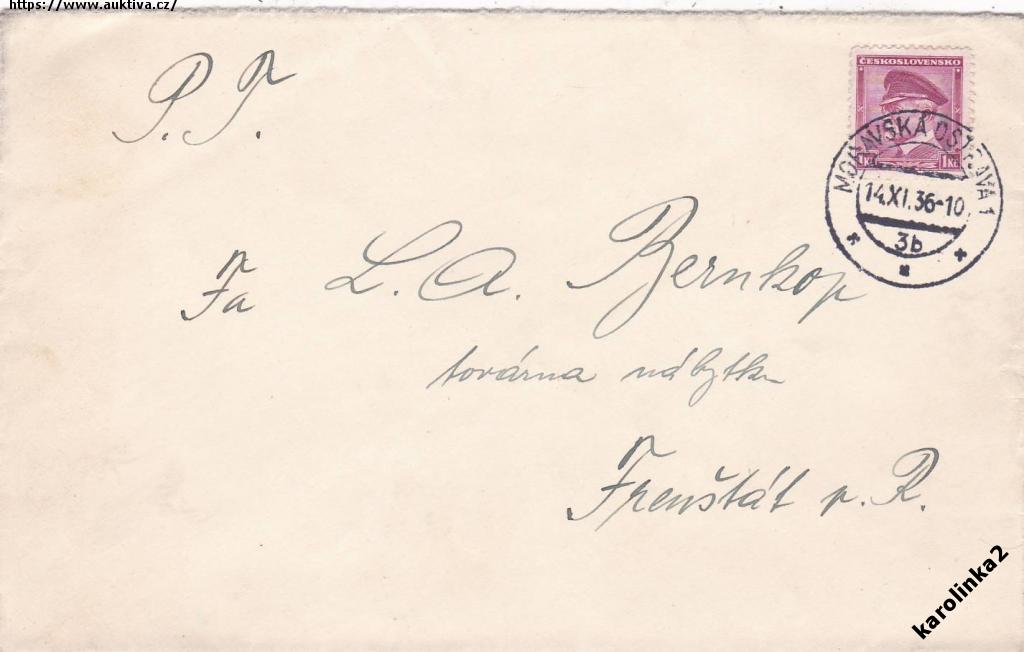 https://www.auktiva.cz/
P. T.
ČESKOSLOVENSKO
1Kč 1Kč
MORAVSKÁ OSTRAVA 1
14.XI.36-10
3b
Fa L. A. Bernkop
továrna nábytku
Frenštát p. R.
karolinka2